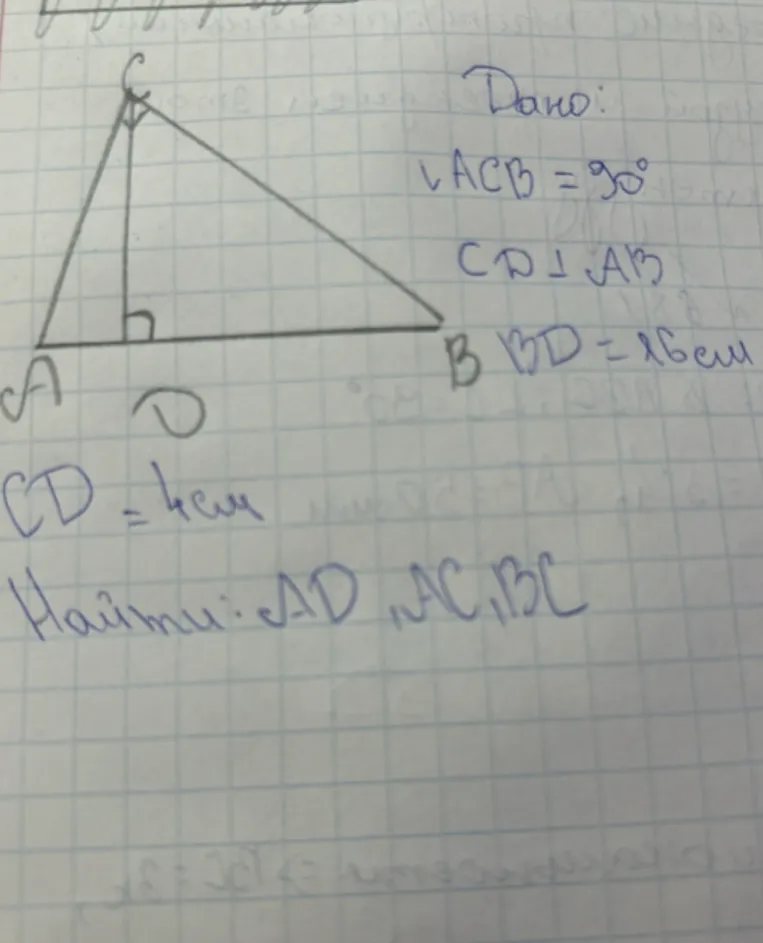 C
Дано:
∠ACB = 90°
CD ⊥ AB
A
D
B
BD = 16 см
CD = 4 см
Найти: AD, AC, BC